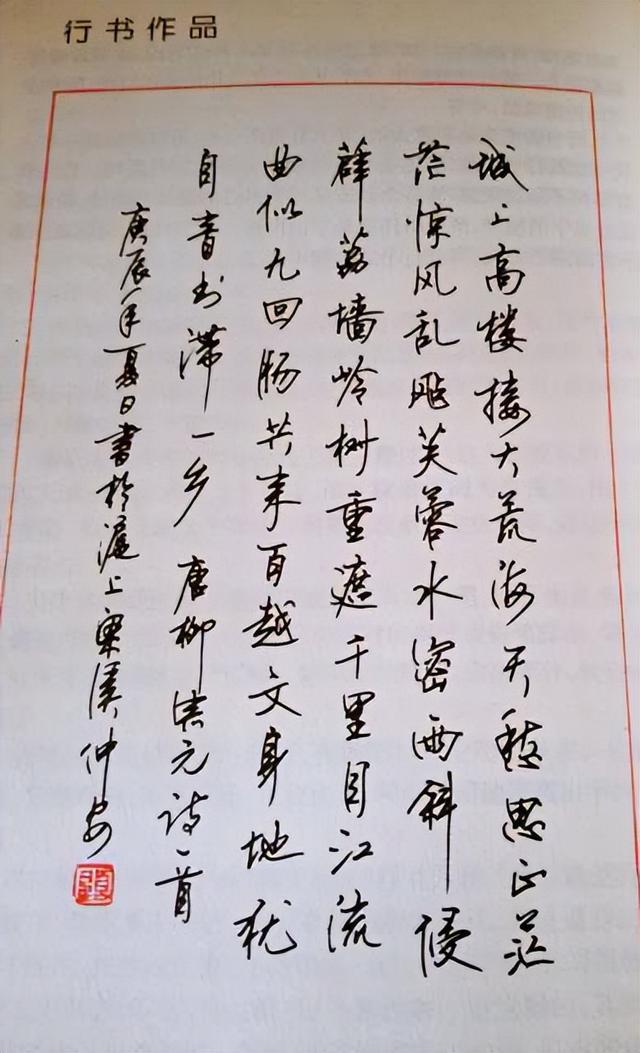 行书作品
城上高楼接大荒海天愁思正茫
茫惊风乱飐芙蓉水密雨斜侵
薜荔墙岭树重遮千里目江流
曲似九回肠共来百越文身地犹
自音书滞一乡 唐柳宗元诗一首
庚辰年夏日書於滬上溪仲安